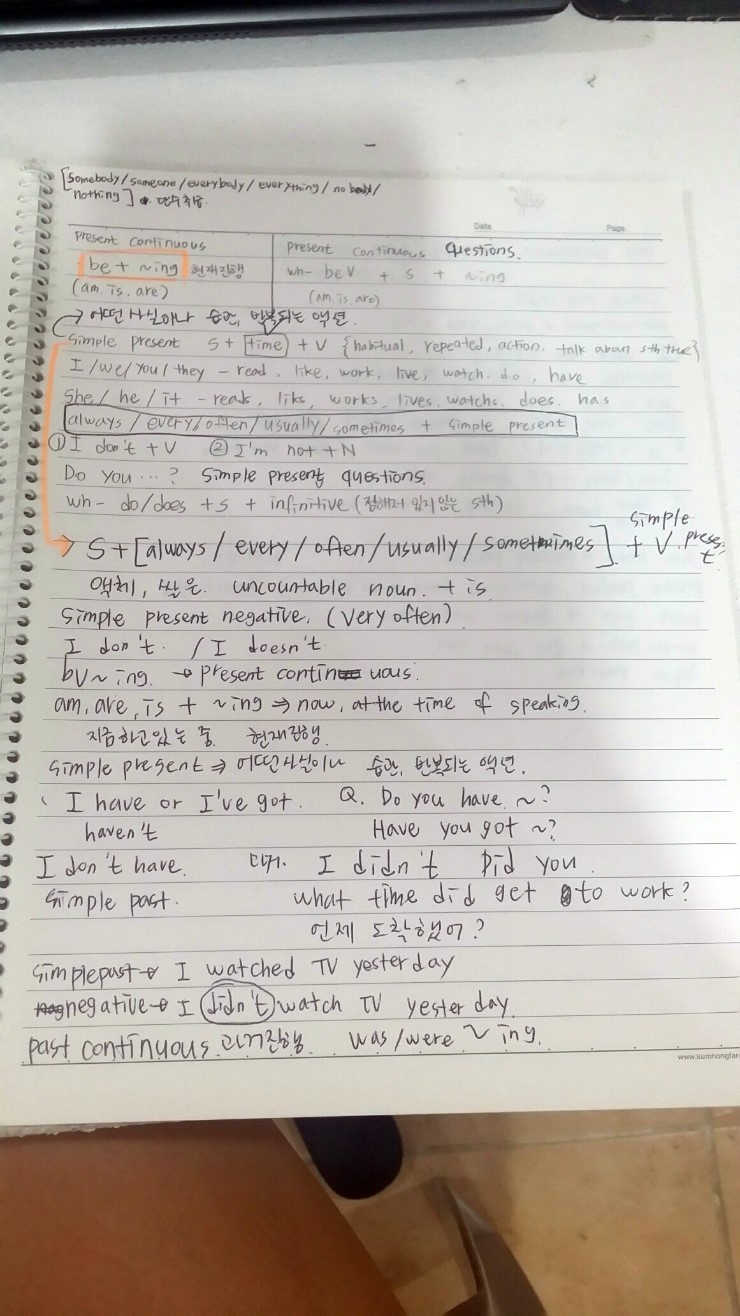 [somebody/someone/everybody/everything/nobody/
nothing] 단수취급.
Date Page
Present continuous
be + ~ing 현재진행
(am, is, are)
Present continuous Questions.
wh- beV + S + ~ing
(am, is, are)
→ 어떤 사실이나 습관, 반복되는 액션.
Simple present S + time + V {habitual, repeated, action. talk about sth true}
I/we/You/they - read, like, work, live, watch. do, have
She/he/it - reads, liks, works, lives. watchs. does. has
always/every/often/usually/sometimes + simple present
① I don't + V ② I'm not + N
Do you ...? Simple present questions.
wh- do/does + s + infinitive (정해져 있지 않은 sth)
→ S + [always/every/often/usually/sometimes] + V. simple present
액체, 쌀은. uncountable noun. + is.
Simple present negative. (Very often)
I don't. / I doesn't.
bv~ing. → present continuous.
am, are, is + ~ing ⇒ now, at the time of speaking.
지금하고있는 중. 현재진행.
Simple present ⇒ 어떤사실이나 습관, 반복되는 액션.
I have or I've got. Q. Do you have ~?
haven't Have you got ~?
I don't have. 과거. I didn't Did you
Simple past. what time did get to work?
언제 도착했어?
Simple past → I watched TV yesterday
negative → I didn't watch TV yesterday.
past continuous 과거진행. was/were ~ing.